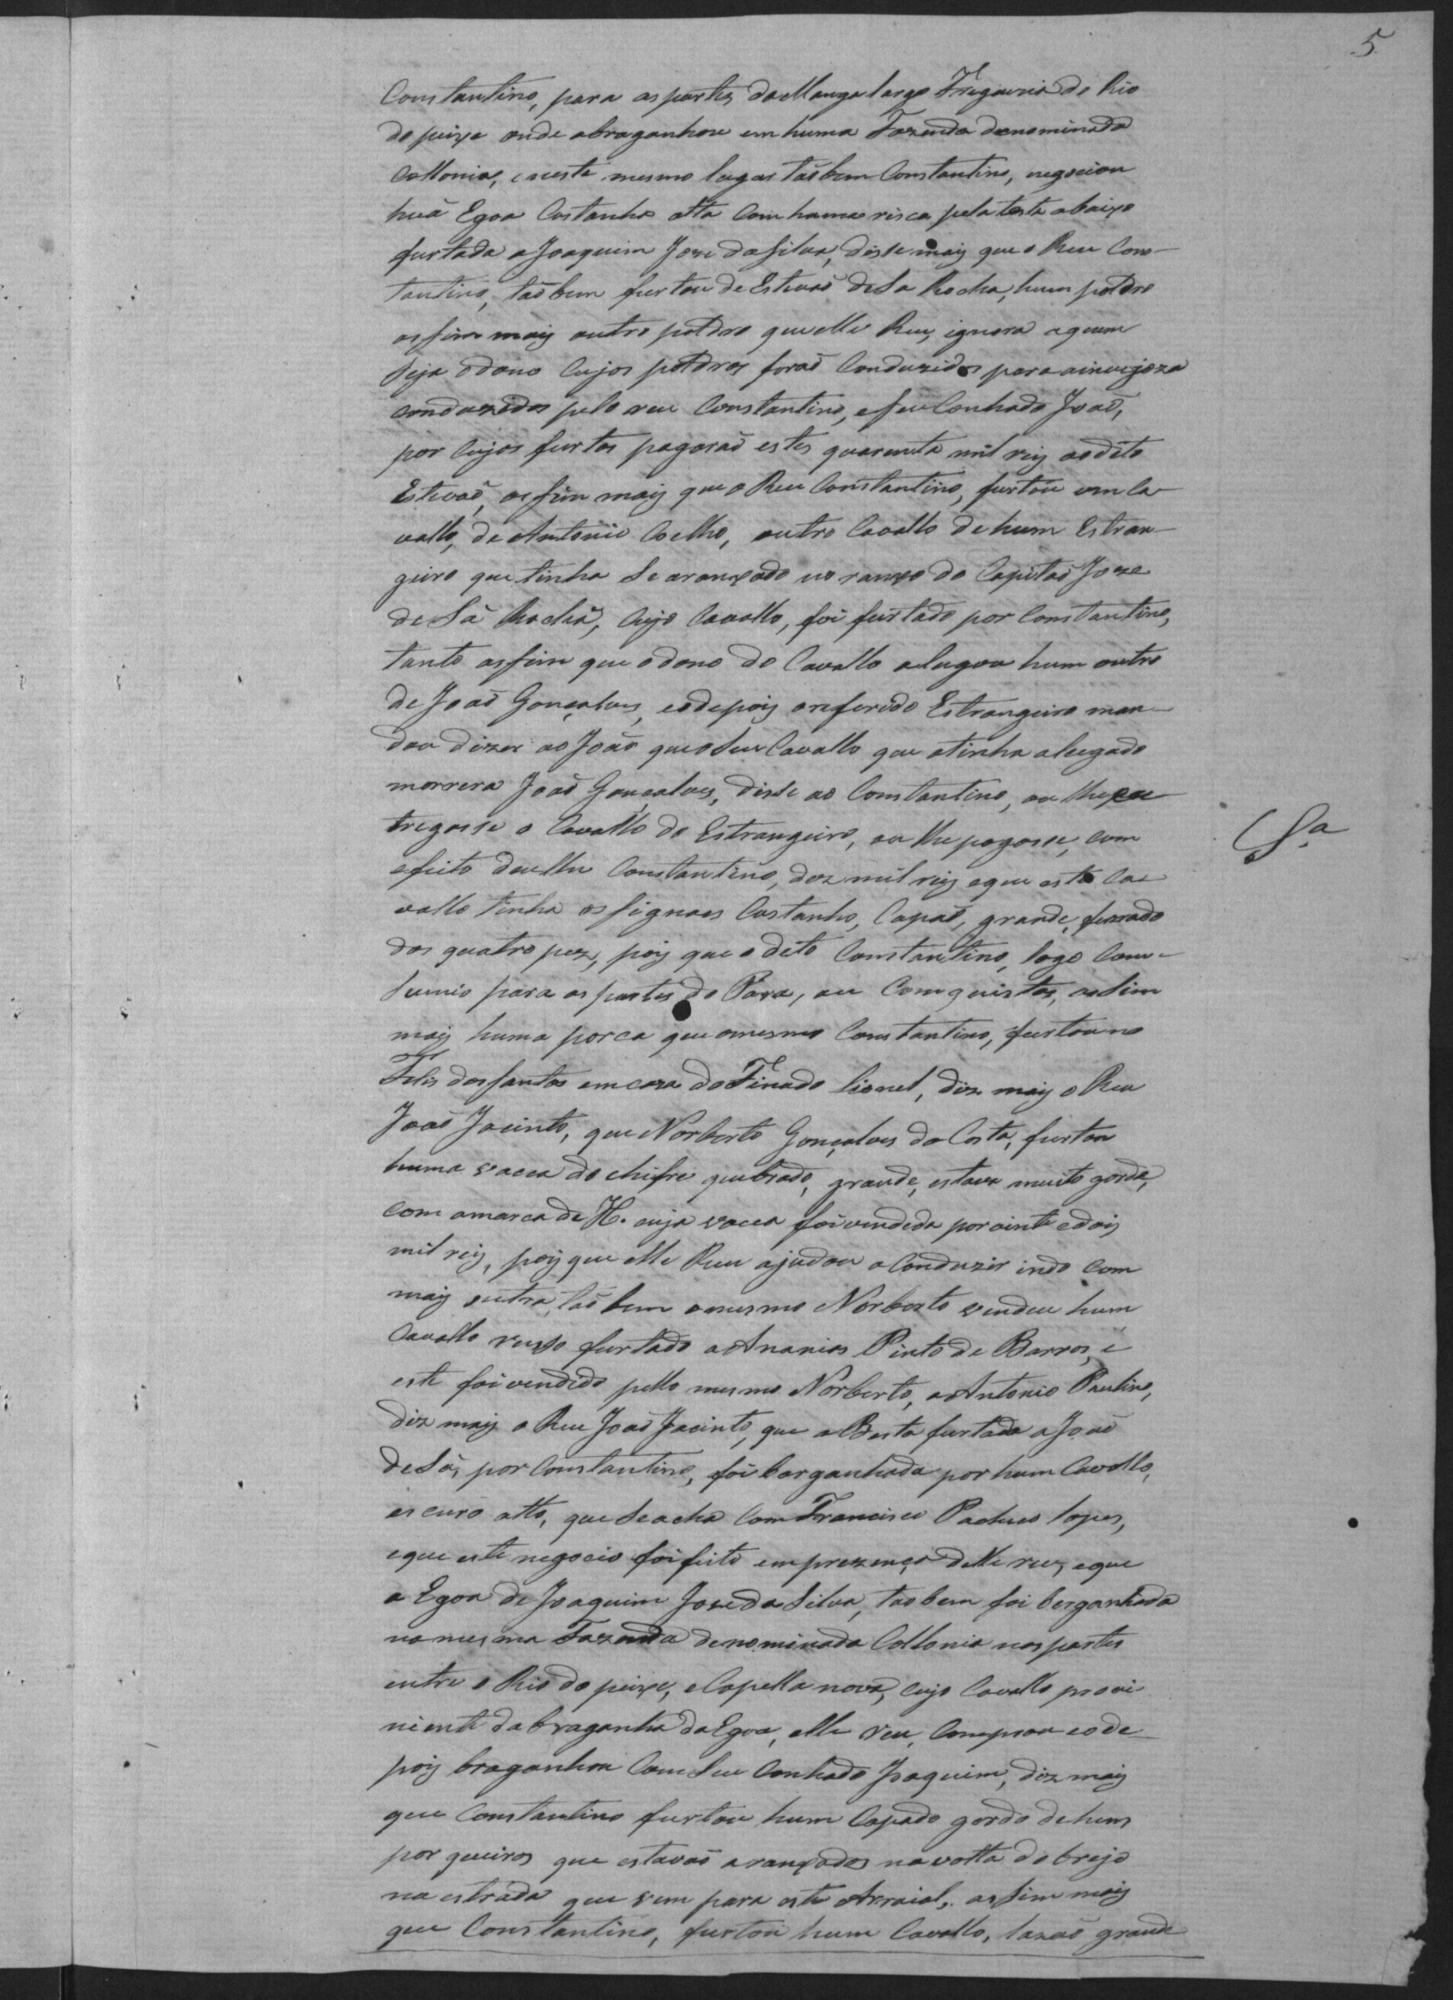 5
Constantino, para as partes da Manga larga Freguezia do Rio
do peixe onde abraganhou em huma Fazenda denominada
Collonia, e neste mesmo lugar taõ bem Constantino, negociou
huã Egoa Castanha alta com huma risca pela testa abaixo
furtada a Joaquim Joze da Silva, disse mais que o Reu Cons-
tantino, taõ bem furtou de Estevaõ de Sa Rocha, hum potdro
assim mais outro potdro que elle Reu, ignora a quem
seja o dono cujos potdros foraõ conduzidos para
conduzidos pelo reu Constantino, e seu Conhado Joaõ,
por cujos furtos pagaraõ estes quarenta mil reis ao dito
Estevaõ, assim mais que o Reu Constantino, furtou um Ca-
vallo, de Antonio Coelho, outro Cavallo de hum Estran-
geiro que tinha se aranxado no ranxo do Capitaõ Joze
de Sá Rocha, cujo Cavallo, foi furtado por Constantino,
tanto assim que o dono do Cavallo alugou hum outro
de Joaõ Gonçalves, e o depois o referido Estrangeiro man-
dou dizer ao Joaõ que o seu Cavallo que o tinha alugado
morrera Joaõ Gonçalves, disse ao Constantino, ou lhe en
tregasse o Cavallo do Estrangeiro, ou lhe pagasse, com
efeito deu lhe Constantino, dez mil reis e que este Ca-
vallo tinha os signaes Castanho, Capaõ, grande, ferrado
dos quatro pez, pois que o dito Constantino, logo com-
sumio para as partes do Para, ou Comquistas, assim
mais huma porca que o mesmo Constantino, furtou no
Felis dos Santos em caza do Finado Lionel, diz mais o Reu
Joaõ Jacinto, que Norberto Gonçalves da Costa, furtou
huma vacca do chifre quebrado, grande, estava muito gorda,
com a marca de H. cuja vacca foi vendida por vinte e dois
mil reis, pois que elle Reu ajudou a conduzir indo com
mais outra, taõ bem o mesmo Norberto vendeu hum
Cavallo russo furtado a Ananias Pinto de Barros, e
este foi vendido pello mesmo Norberto, a Antonio Paulino,
diz mais o Reu Joaõ Jacinto, que a Besta furtada a Joaõ
de Sá, por Constantino, foi barganhada por hum Cavallo,
escuro alto, que se acha com Francisco Pacheco Lopes,
e que este negocio foi feito em prezença delle reu, e que
a Egoa de Joaquim Joze da Silva, tao bem foi berganhada
na mesma Fazenda denominada Collonia nas partes
entre o Rio do peixe, e Capella nova, cujo Cavallo provi
niente da braganha da Egoa, elle reu, Comprou e o de-
pois braganhou com seu Conhado Joaquim, diz mais
que Constantino furtou hum Capado gordo de huns
porqueiros que estavaõ aranxados na volta do brejo
na estrada que vem para este Arraial, assim mais
que Constantino, furtou hum Cavallo, lazaõ grande
Sa